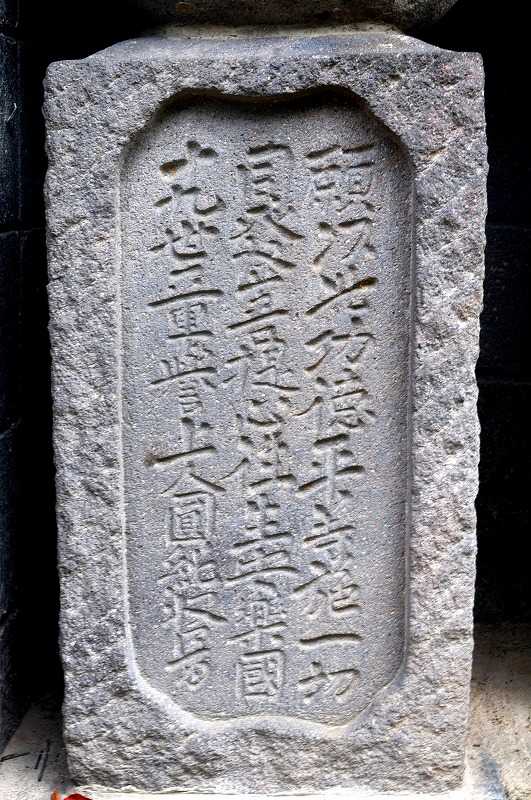 願以此功徳平等施一切
同發菩提心往生安樂國
十九世三重譽上人圓